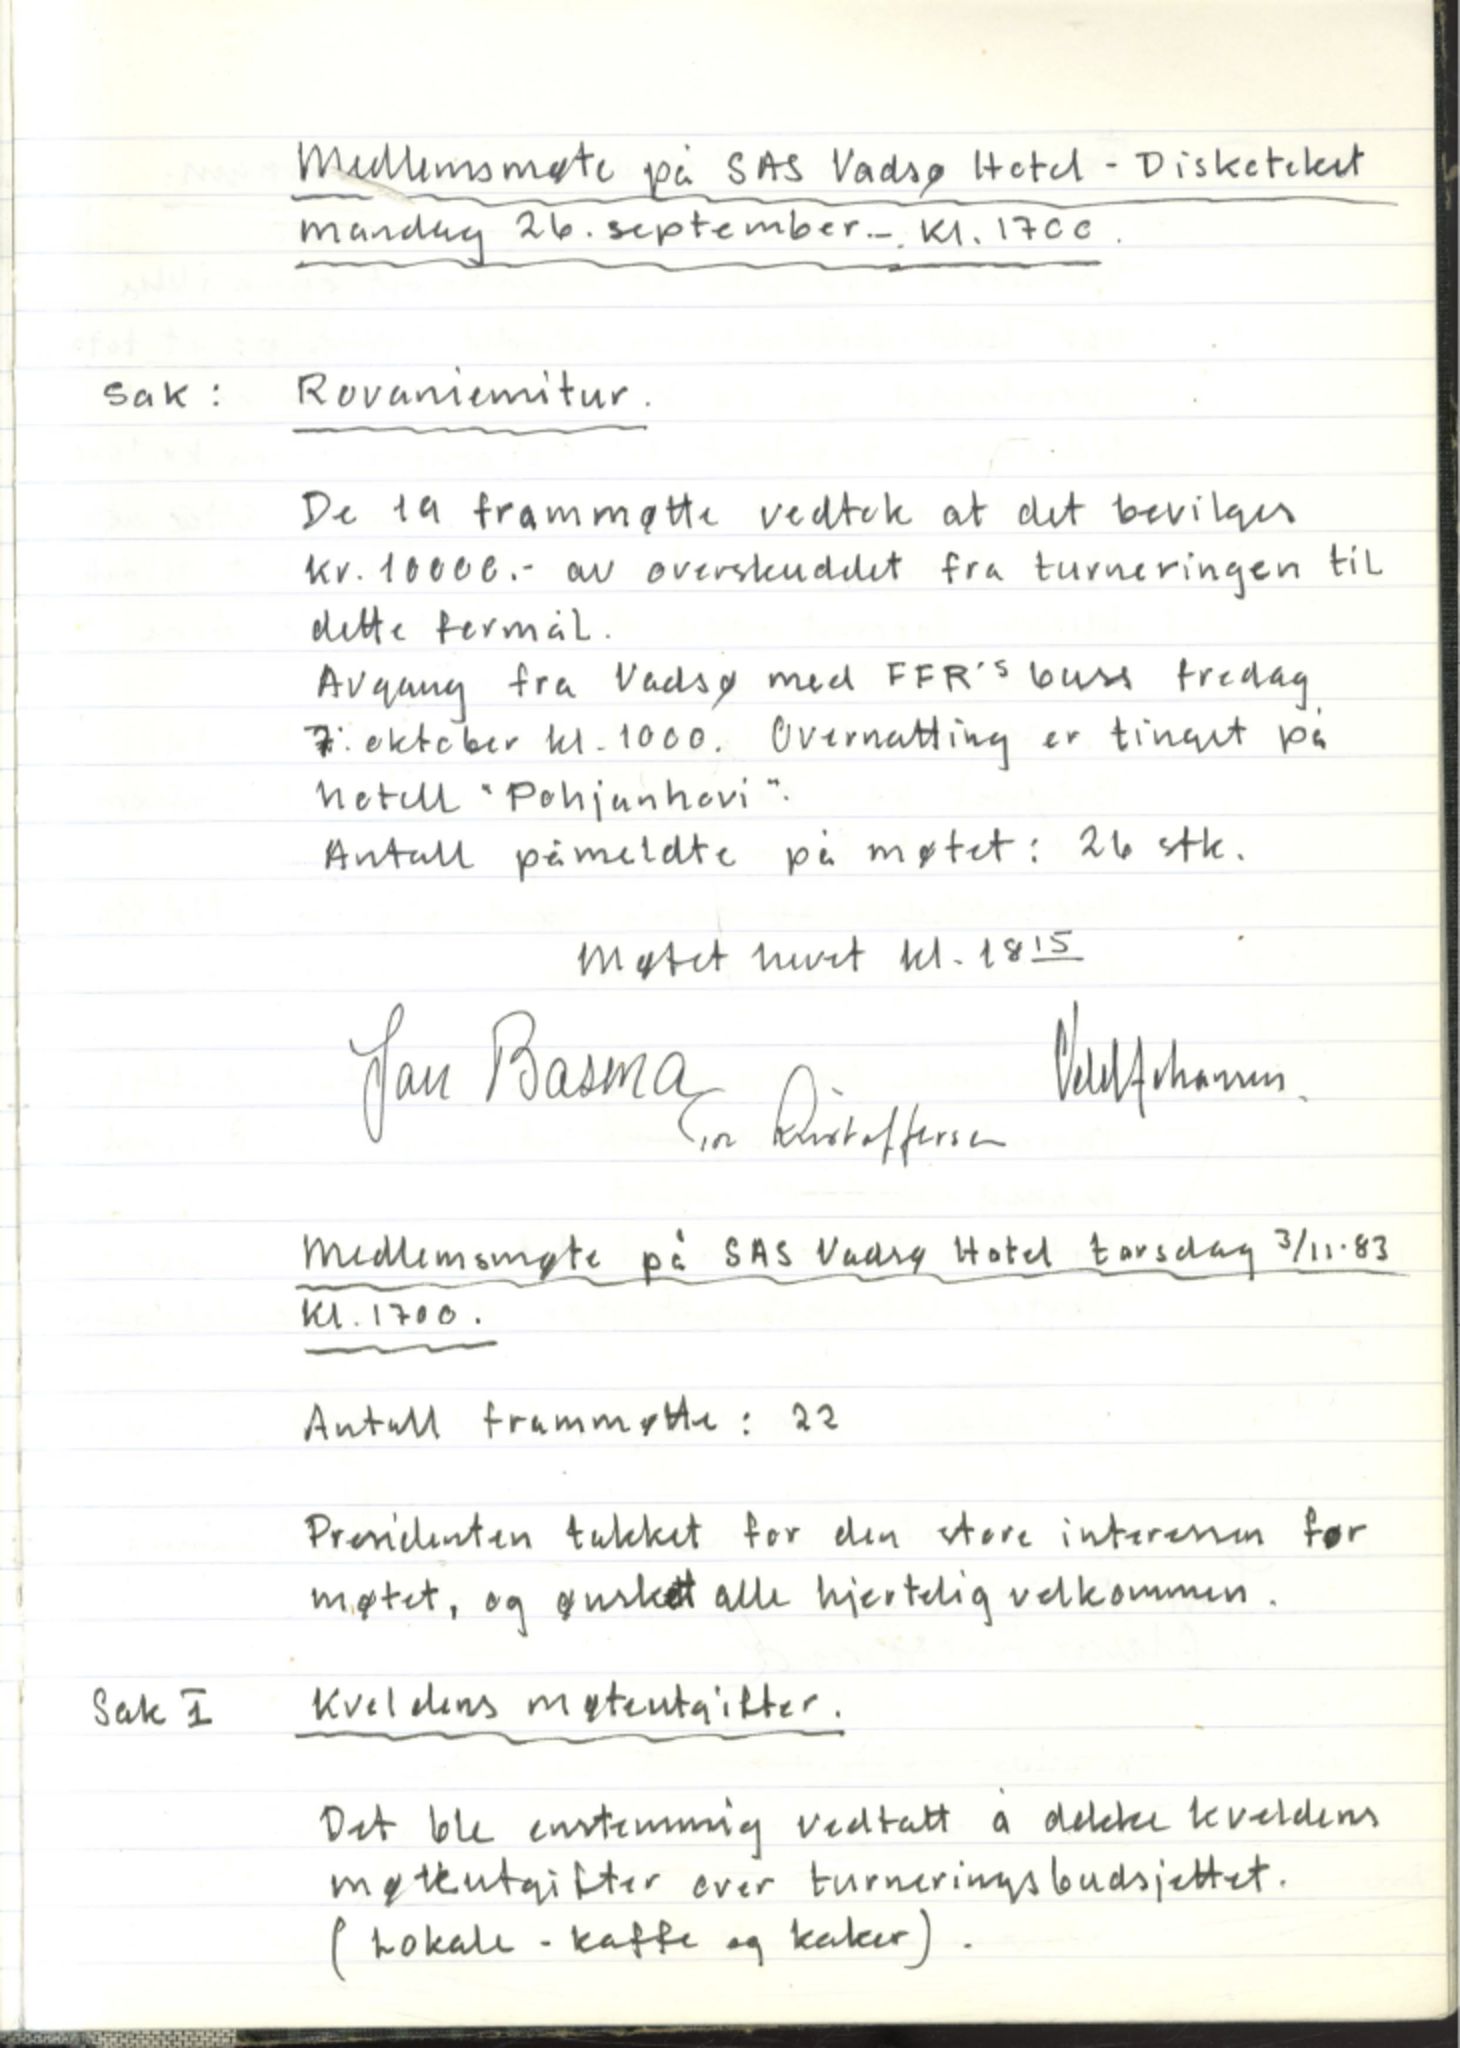 Medlemsmøte på SAS Vadsø Hotel - Disketeket
mandag 26. september. - Kl. 1700.
Sak: Rovaniemitur.
De 19 frammøtte vedtok at det bevilges
Kr. 10000.- av overskuddet fra turneringen til
dette formål.
Avgang fra Vadsø med FFR's buss fredag
7. oktober kl. 1000. Overnatting er tinget på
hotell "Pohjanhovi".
Antall påmeldte på møtet: 26 stk.
Møtet hevet kl. 18 15
Jan Basma
Tor Kristoffersen
Medlemsmøte på SAS Vadsø Hotel torsdag 3/11-83
Kl. 1700.
Antall frammøtte: 22
Presidenten takket for den store interessen før
møtet, og ønsket alle hjertelig velkommen.
Sak I Kveldens møteutgifter.
Det ble enstemmig vedtatt å dekke kveldens
møteutgifter over turneringsbudsjettet.
(Lokale - kaffe og kaker).